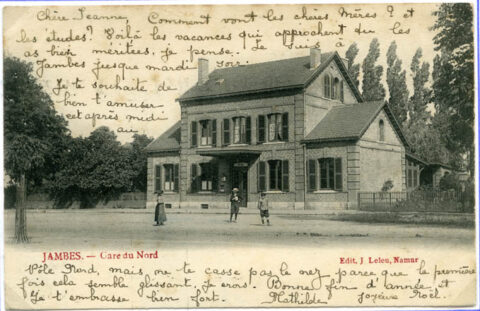 Chère Jeanne, Comment vont les chères Mères? et
les études? Voilà les vacances qui approchent tu les
as bien méritées, je pense. Je suis à
Jambes jusque mardi soir.
Je te souhaite de
bien t'amuser
cet après midi
au
JAMBES. — Gare du Nord
Edit. J Leleu, Namur
Pôle Nord, mais ne te casse pas le nez parce que la première
fois cela semble glissant, je crois. Bonne fin d'année et
Je t'embrasse bien fort. Mathilde Joyeux Noël.